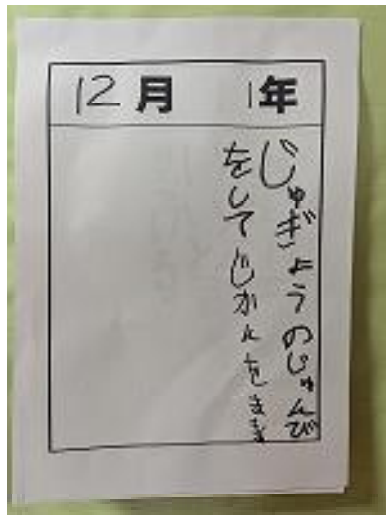 12月 1年
じゅぎょうのじゅんび
をしてじかんをまも